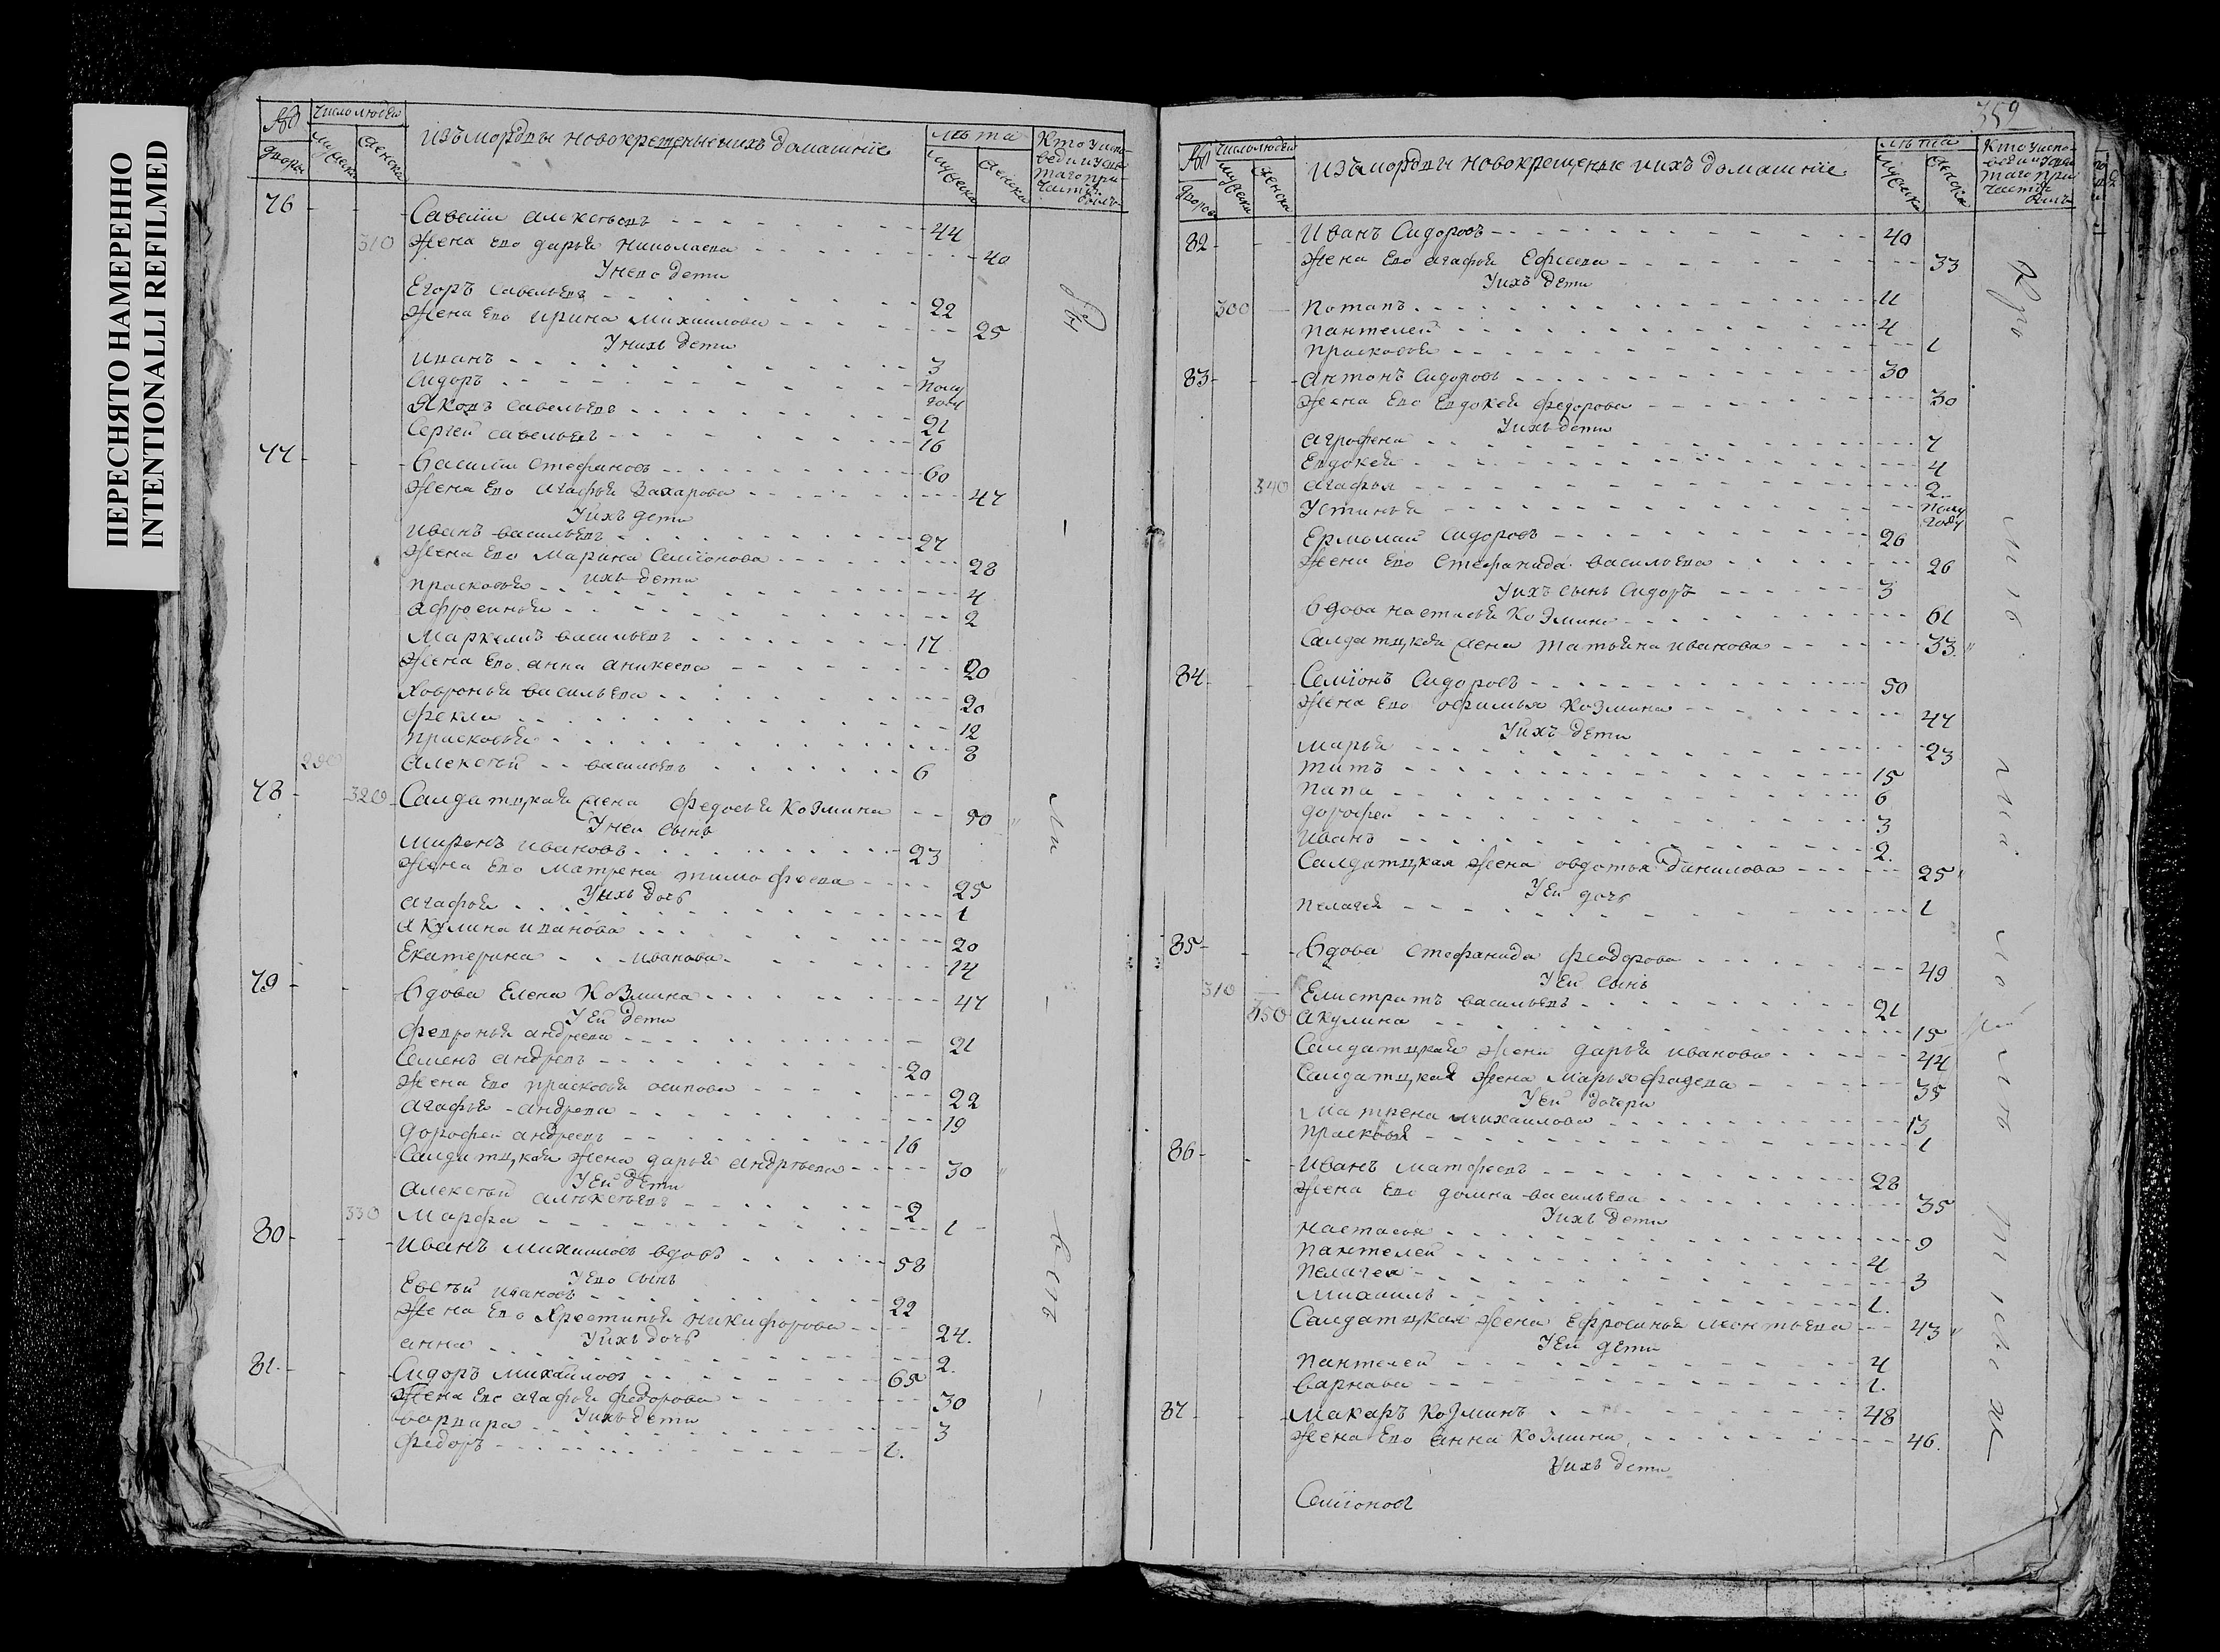 ПЕРЕСНЯТО НАМЕРЕННО
INTENTIONALLI REFILMED
число людей
изъ мордвы новокрещеные и ихъ домашние
лета
76
Савелiй алексеевъ 44
310 жена ево дарья николаева 40
У нево дети
Егоръ савельевъ 22
жена ево ирина михаилова 25
У нихъ дети
иванъ 3
сидоръ полу году
Яковъ савельевъ 21
Сергей савельевъ 16
77 Василiй стефановъ 60
жена ево агафья Захарова 47
У ихъ дети
иванъ васильевъ 27
жена ево Марина Семiонова 28
ихъ дети
прасковья 4
афросинья 2
Маркелъ васильевъ 17
жена ево анна аникеева 20
Ховронья васильева 20
фекла 12
прасковья 8
290 алексей васильевъ 6
78 320 Салдатцкая жена федосья Козмина 50
У неи сынъ
Миронъ ивановъ 23
жена ево матрена тимофеева 25
У ихъ дочь
агафья 1
акулина иванова 20
Екатерина иванова 14
79 Вдова Елена Козмина 47
У Ей дети
Февронья андреева 21
Семенъ андреевъ 20
жена ево прасковья осипова 22
агафья андреева 19
дорофей андреевъ 16
Салдатцкая жена дарья андреева 30
У Ей дети
алексей алексеевъ 2
330 Марфа 1
80 Иванъ михаиловъ вдовъ 58
У Ево сынъ
Евсей ивановъ 22
жена ево Хрестинья никифорова 24.
У ихъ дочь
анна 2.
81. Сидоръ михаиловъ 65
жена ево агафья федорова 30
У ихъ дети
варвара 3
федоръ 1.
359
число людей
изъ мордвы новокрещеные и ихъ домашнiе
лета
82 Иванъ Сидоровъ 40
жена ево агафья Ефисева 33
У ихъ дети
300 Потапъ 11
пантелей 4
прасковья 1
83 антонъ сидоровъ 30
жена ево Евдокея федорова 30
У ихъ дети
аграфена 7
Евдокея 4
340 агафья 2
Устинья полу году
Ермолай сидоровъ 26
жена ево Стефанида васильева 26
У ихъ сынъ Сидоръ 3
Вдова настасья Козмина 61
Салдатцкая жена татьяна иванова 33
84 Семiонъ Сидоровъ 50
жена ево офимья Козмина 47
У ихъ дети
марья 23
титъ 15
папа 6
дорофей 3
иванъ 2.
Салдатцкая жена овдотья данилова 25
У Ей дочь
пелагея 1
85 Вдова стефанида феодорова 49
У Ей сынъ
310 Елистратъ васильевъ 21
350 акулина 15
Салдатцкая жена дарья иванова 44
Салдатцкая жена Марья фадеева 35
У Ей дочери
Матрена михаилова 13
прасковья 1
86 Иванъ матфеевъ 28
жена ево домна васильева 35
У ихъ дети
настасья 9
пантелей 4
пелагея 3
михаилъ 1.
Салдатцкая жена Ефросинья леонтьева 43
У Ей дети
пантелей 4
варнава 1.
87 Макаръ Козминъ 48
жена ево анна Козмина 46.
У ихъ дети
Семiоновъ